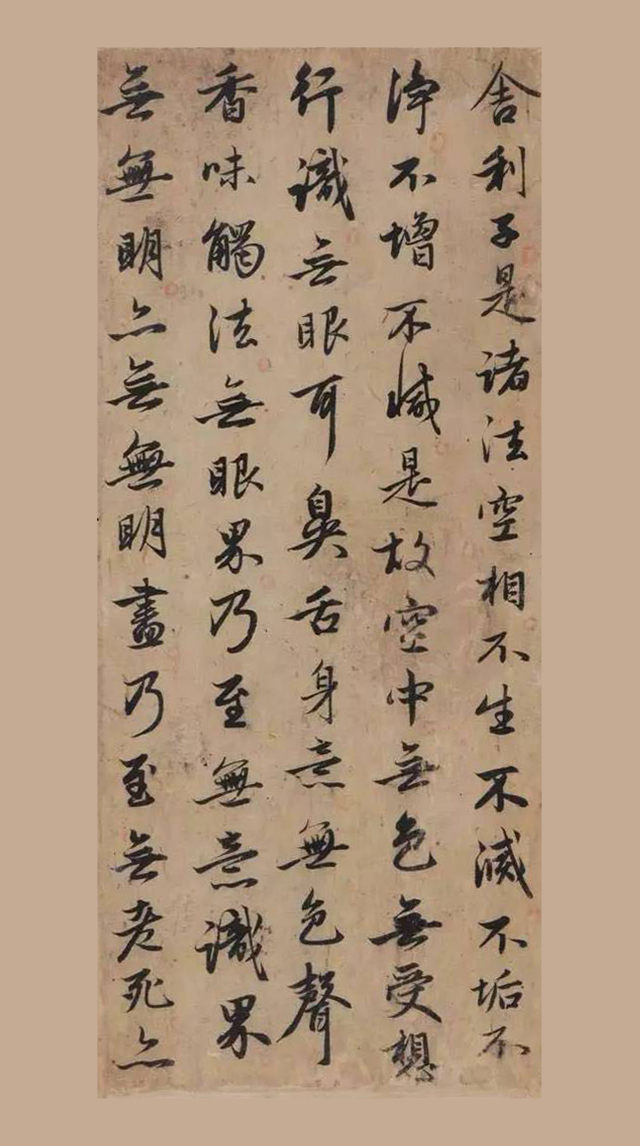 舍利子是诸法空相不生不滅不垢不
淨不增不減是故空中無色無受想
行識无眼耳鼻舌身意無色聲
香味觸法無眼界乃至無意識界
無無明亦無無明盡乃至無老死亦